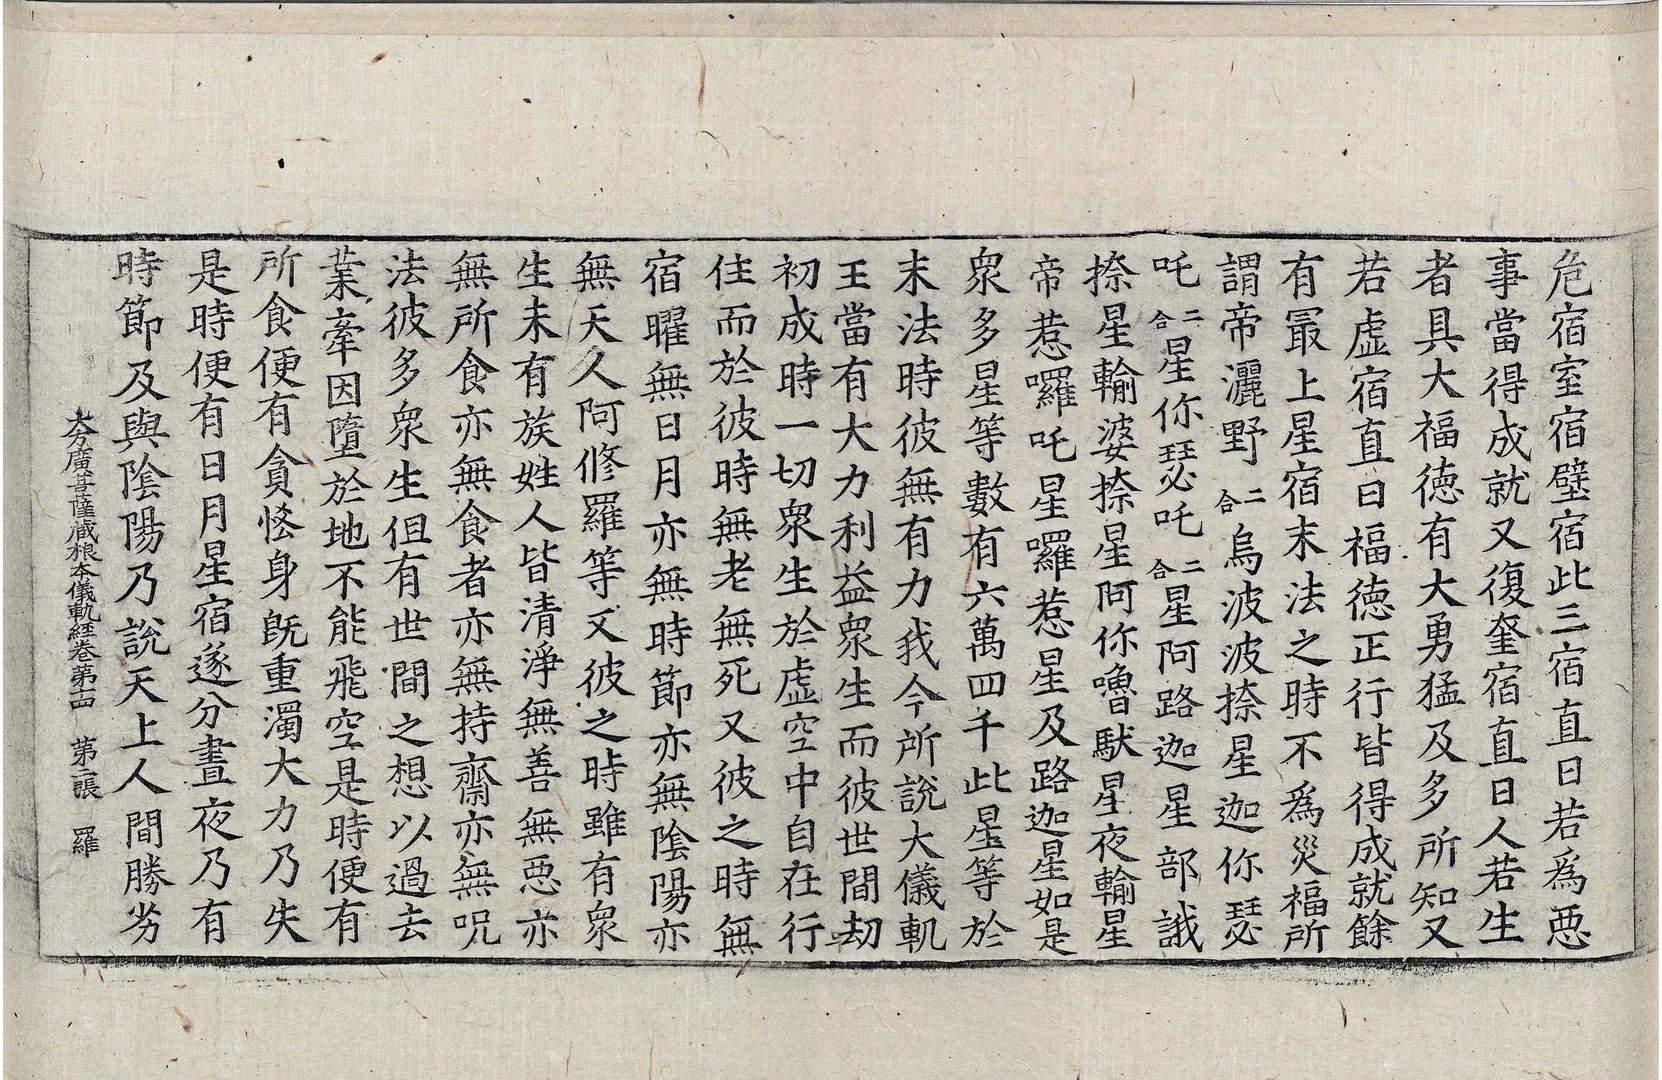 危宿室宿壁宿此三宿直日若為惡
事當得成就又復奎宿直日人若生
者具大福徳有大勇猛及多所知又
若虛宿直日福徳正行皆得成就餘
有冣上星宿末法之時不為災福所
謂帝灑野二合烏波波捺星迦你瑟
吒二合星你瑟吒二合星阿路迦星部誐
捺星輸婆捺星阿你嚕馱星夜輸星
帝惹囉吒星囉惹星及路迦星如是
衆多星等數有六萬四千此星等於
末法時彼無有力我今所說大儀軌
王當有大力利益衆生而彼世間劫
初成時一切衆生於虛空中自在行
住而於彼時無老無死又彼之時無
宿曜無日月亦無時節亦無陰陽亦
無天久阿修羅等又彼之時雖有衆
生未有族姓人皆清淨無善無惡亦
無所食亦無食者亦無持齋亦無呪
法彼多衆生但有世間之想以過去
業牽因墮於地不能飛空是時便有
所食便有貪悋身旣重濁大力乃失
是時便有日月星宿遂分晝夜乃有
時節及與陰陽乃說天上人間勝劣
大方廣菩薩藏根本儀軌經卷第十四 第二張 羅